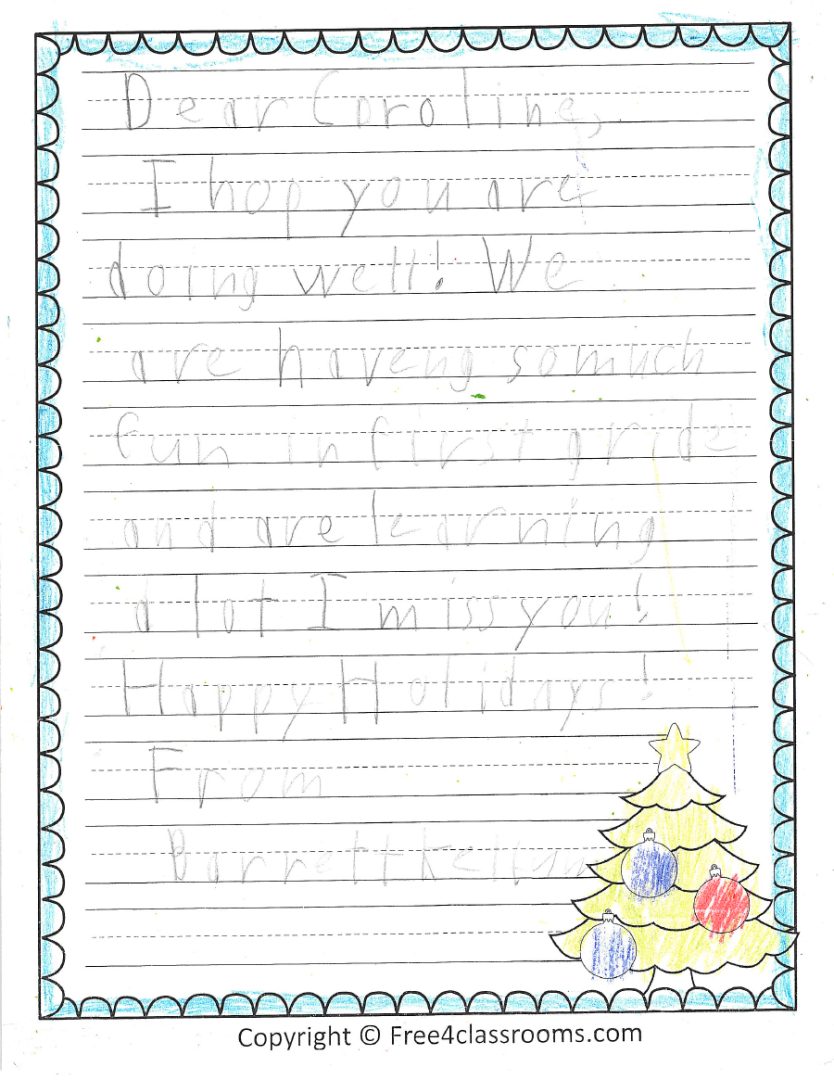 Dear Caroline,
I hop you are
doing well! We
are haveng so much
fun in first gride
and are learning
a lot I miss you!
Happy Holidays!
From
Barrett Kellum
Copyright © Free4classrooms.com